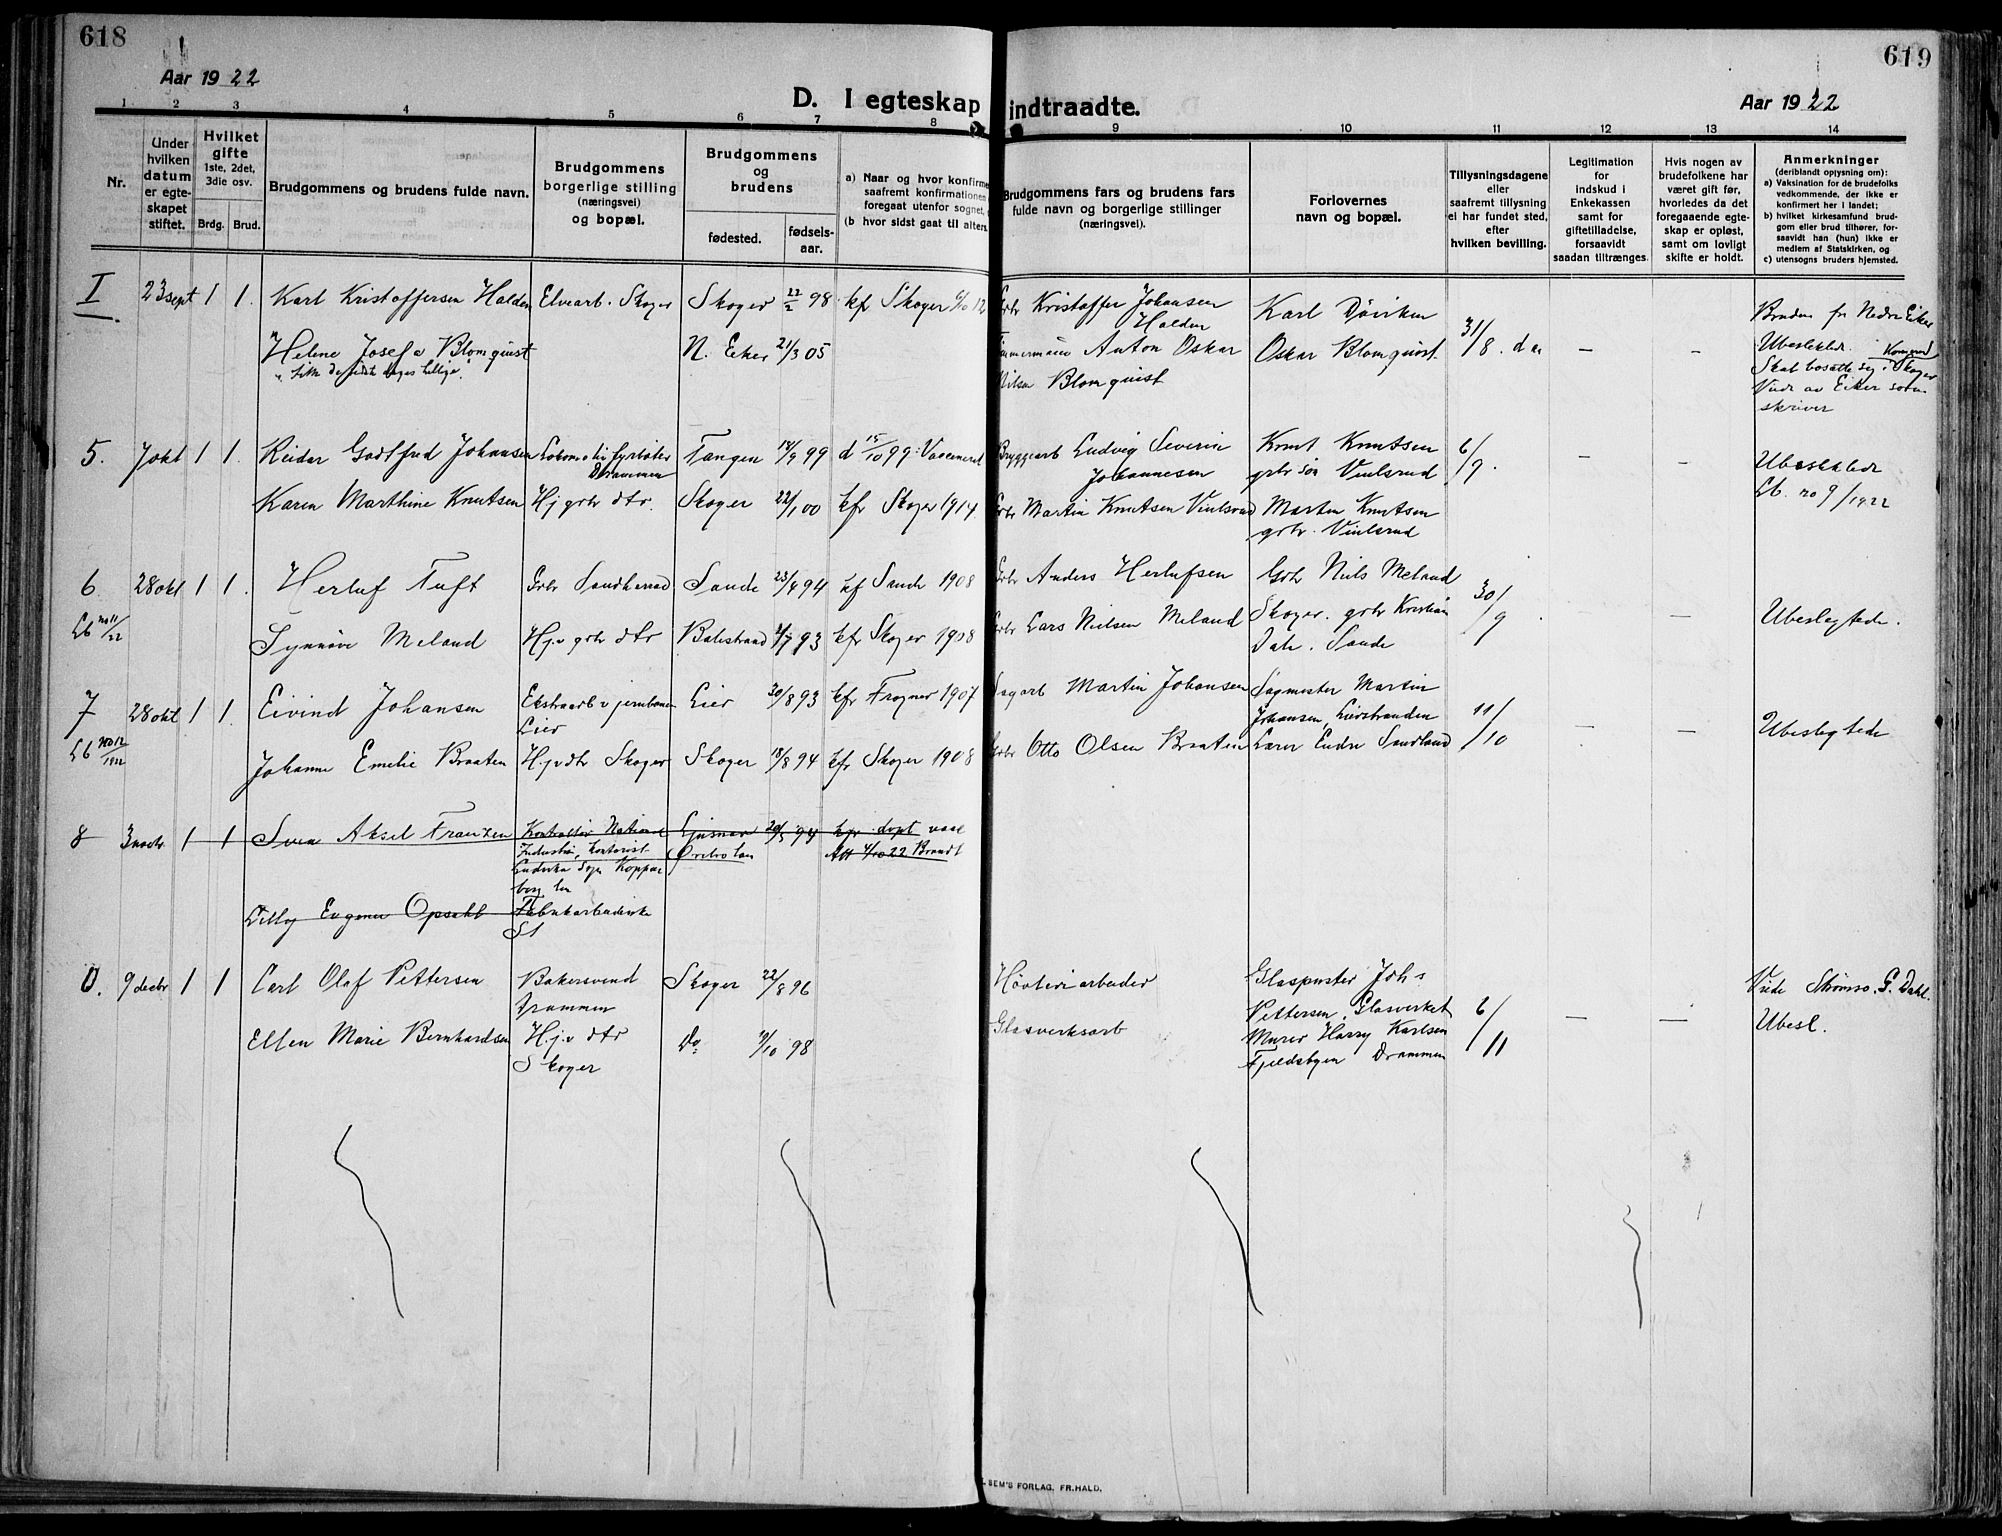 618
619
Aar 1922
Aar 1922
D. I egteskap indtraadte.
1 2 3 4 5 6 7 8 9 10 11 12 13 14
Nr.
Under hvilken datum er egteskapet stiftet.
Hvilket gifte 1ste, 2det, 3die osv.
Brdg. Brud.
Brudgommens og brudens fulde navn.
Brudgommens borgerlige stilling (næringsvei) og bopæl.
Brudgommens og brudens
fødested. fødselsaar.
a) Naar og hvor konfirme
saafremt konfirmationen
foregaat utenfor sognet,
(b hvor sidst gaat til alters.
Brudgommens fars og brudens fars
fulde navn og borgerlige stillinger
(næringsvei).
Forlovernes
navn og bopæl.
Tillysningsdagene
eller
saafremt tillysning
ei har fundet sted,
efter
hvilken bevilling.
Legitimation
for
indskud i
Enkekassen
samt for
giftetilladelse,
forsaavidt
saadan tiltrænges.
Hvis nogen av
brudefolkene har
været gift før,
hvorledes da det
foregaaende egte-
skap er opløst,
samt om lovligt
skifte er holdt.
Anmerkninger
(deriblandt opysning om):
a) Vaksination for de brudefolks
vedkommende, der ikke er
konfirmert her i landet;
b) hvilket kirkesamfund brud-
gom eller brud tilhører, for-
saavidt han (hun) ikke er
medlem af Statskirken, og
c) utensogns bruders hjemsted.
I 23 sept 1 1. Karl Kristoffersen Halden Elvearb. Skoger Skoger 22/2 98 kf Skoger 6/10 12 Kristoffer Johansen Halden Karl Döviken 31/8 – – Bruden fr Nedre Eiker
Helene Josefa Blomquist N. Eiker 21/3 05 Anton Oskar Oskar Blomquist. Ubeslektede.
Nilsen Blomquist Skal bosætte sig i Skoger
Vidt av Eiker soren-
skriver
5. 7 okt 1 1. Reidar Godtfred Johansen Lokomotivfyrbøter Drammen Tangen 18/9 99 d 15/10 99. Bryggearb Ludvig Severin Johannesen Knut Knutsen 6/9. – – Ubeslektede
grbr søn Vinlsrud
Karen Marthine Knutsen Hj grbr dtr. Skoger 22/1 00 kfr Skoger 1914. Grbr Martin Knutsen Martin Knutsen Lb. no 9/1922
grbr. Vinlsrud
6 28 okt 1 1. Herluf Tuft Grbr Sande 23/4 94 kf Sande 1908 Grbr Anders Herlufsen Grbr Niels Meland 30/9 – – Ubeslegtede.
Lb no 11/22 Synnøve Meland Hj.v grbr dtr Balestrand 93 kfr Skoger 1908 Grbr Lars Nielsen Meland Skoger. grbr Kristian
Dale. Sande
7 28 okt 1 1. Eivind Johansen Ekstraarb v jernbanen Lier Lier 30/8 93 kfr Frogner 1907 Sagarb Martin Johansen Sagmester Martin 11/10 – – Ubeslegtede
Johansen, Lierstranden
Lb no 12/1922 Johanne Emelie Braaten Hj.v dtr Skoger Skoger 18/8 94 kfr Skoger 1908 Grbr Otto Olsen Braaten Lærer Endre Sandland
8 3 novbr 1 1 Sven Aksel Franzen Kontrollør National 94
Industri, kontorist
Att 4/10 22 Brandt
Ludvika Sogn Koppar
berg len
Evgenie Opsahl Fabrikarbeiderske
St
0. 9 decbr 1 1 Carl Olaf Pettersen Bakersvend Skoger 22/8 96 Høvleriarbeider Glaspuster Joh s – – Vide Strømsø. G. Dahl.
Drammen Pettersen, Glasverket 6/11 Ubesl.
Ellen Marie Bernhardsen Hj.v dtr Do /10 98 Glasverksarb Murer Harry Karlsen
Skoger Fjeldsbyen Drammen
SEM'S FORLAG, FR.HALD.